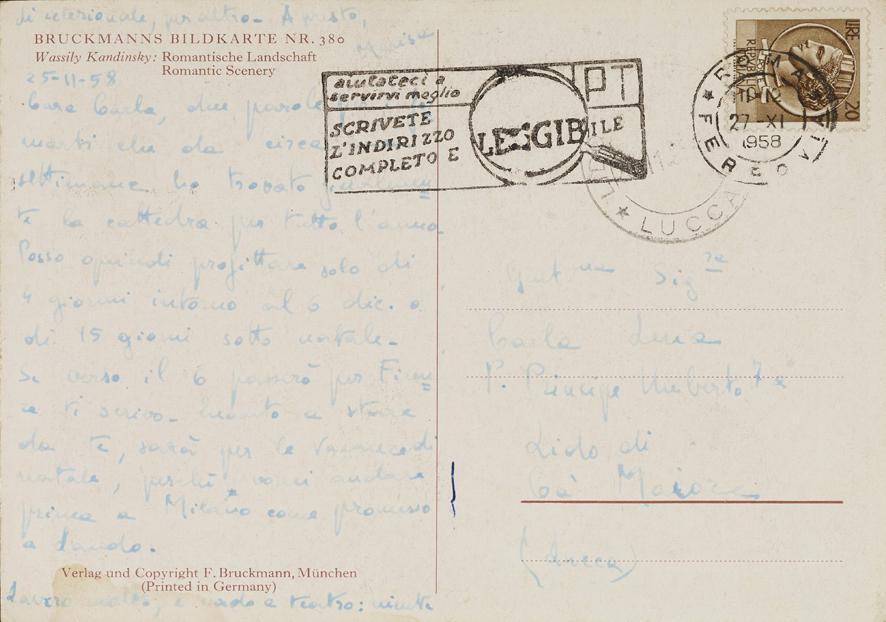 di eccezionale, per altro - A presto,
Marisa
BRUCKMANNS BILDKARTE NR. 380
Wassily Kandinsky: Romantische Landschaft
Romantic Scenery
25-11-58
Cara Carla, due parole per
che da circa
settimane ho trovato
te la cattedra per tutto l'anno.
Posso quindi progettare solo di
4 giorni intorno al 6 dic. o
di 15 giorni sotto natale -
Se verso il 6 passerò per Firen
ze ti scrivo - Quanto a stare
da te, sarà per le vacanze di
natale, perchè vorrei andare
prima a Milano come promesso
a Sando.
Verlag und Copyright F. Bruckmann, München
(Printed in Germany)
Lavoro molto, e vado a teatro: niente
aiutateci a
servirvi meglio
SCRIVETE
L'INDIRIZZO
COMPLETO E LEGGIBILE
PT
LIRE
20
ROMA FERROVIA
11-12
27-XI
1958
LUCCA
Gent.ma Sig.na
Carla
P. Principe Umberto
Lido di
Camaiore
(Lucca)